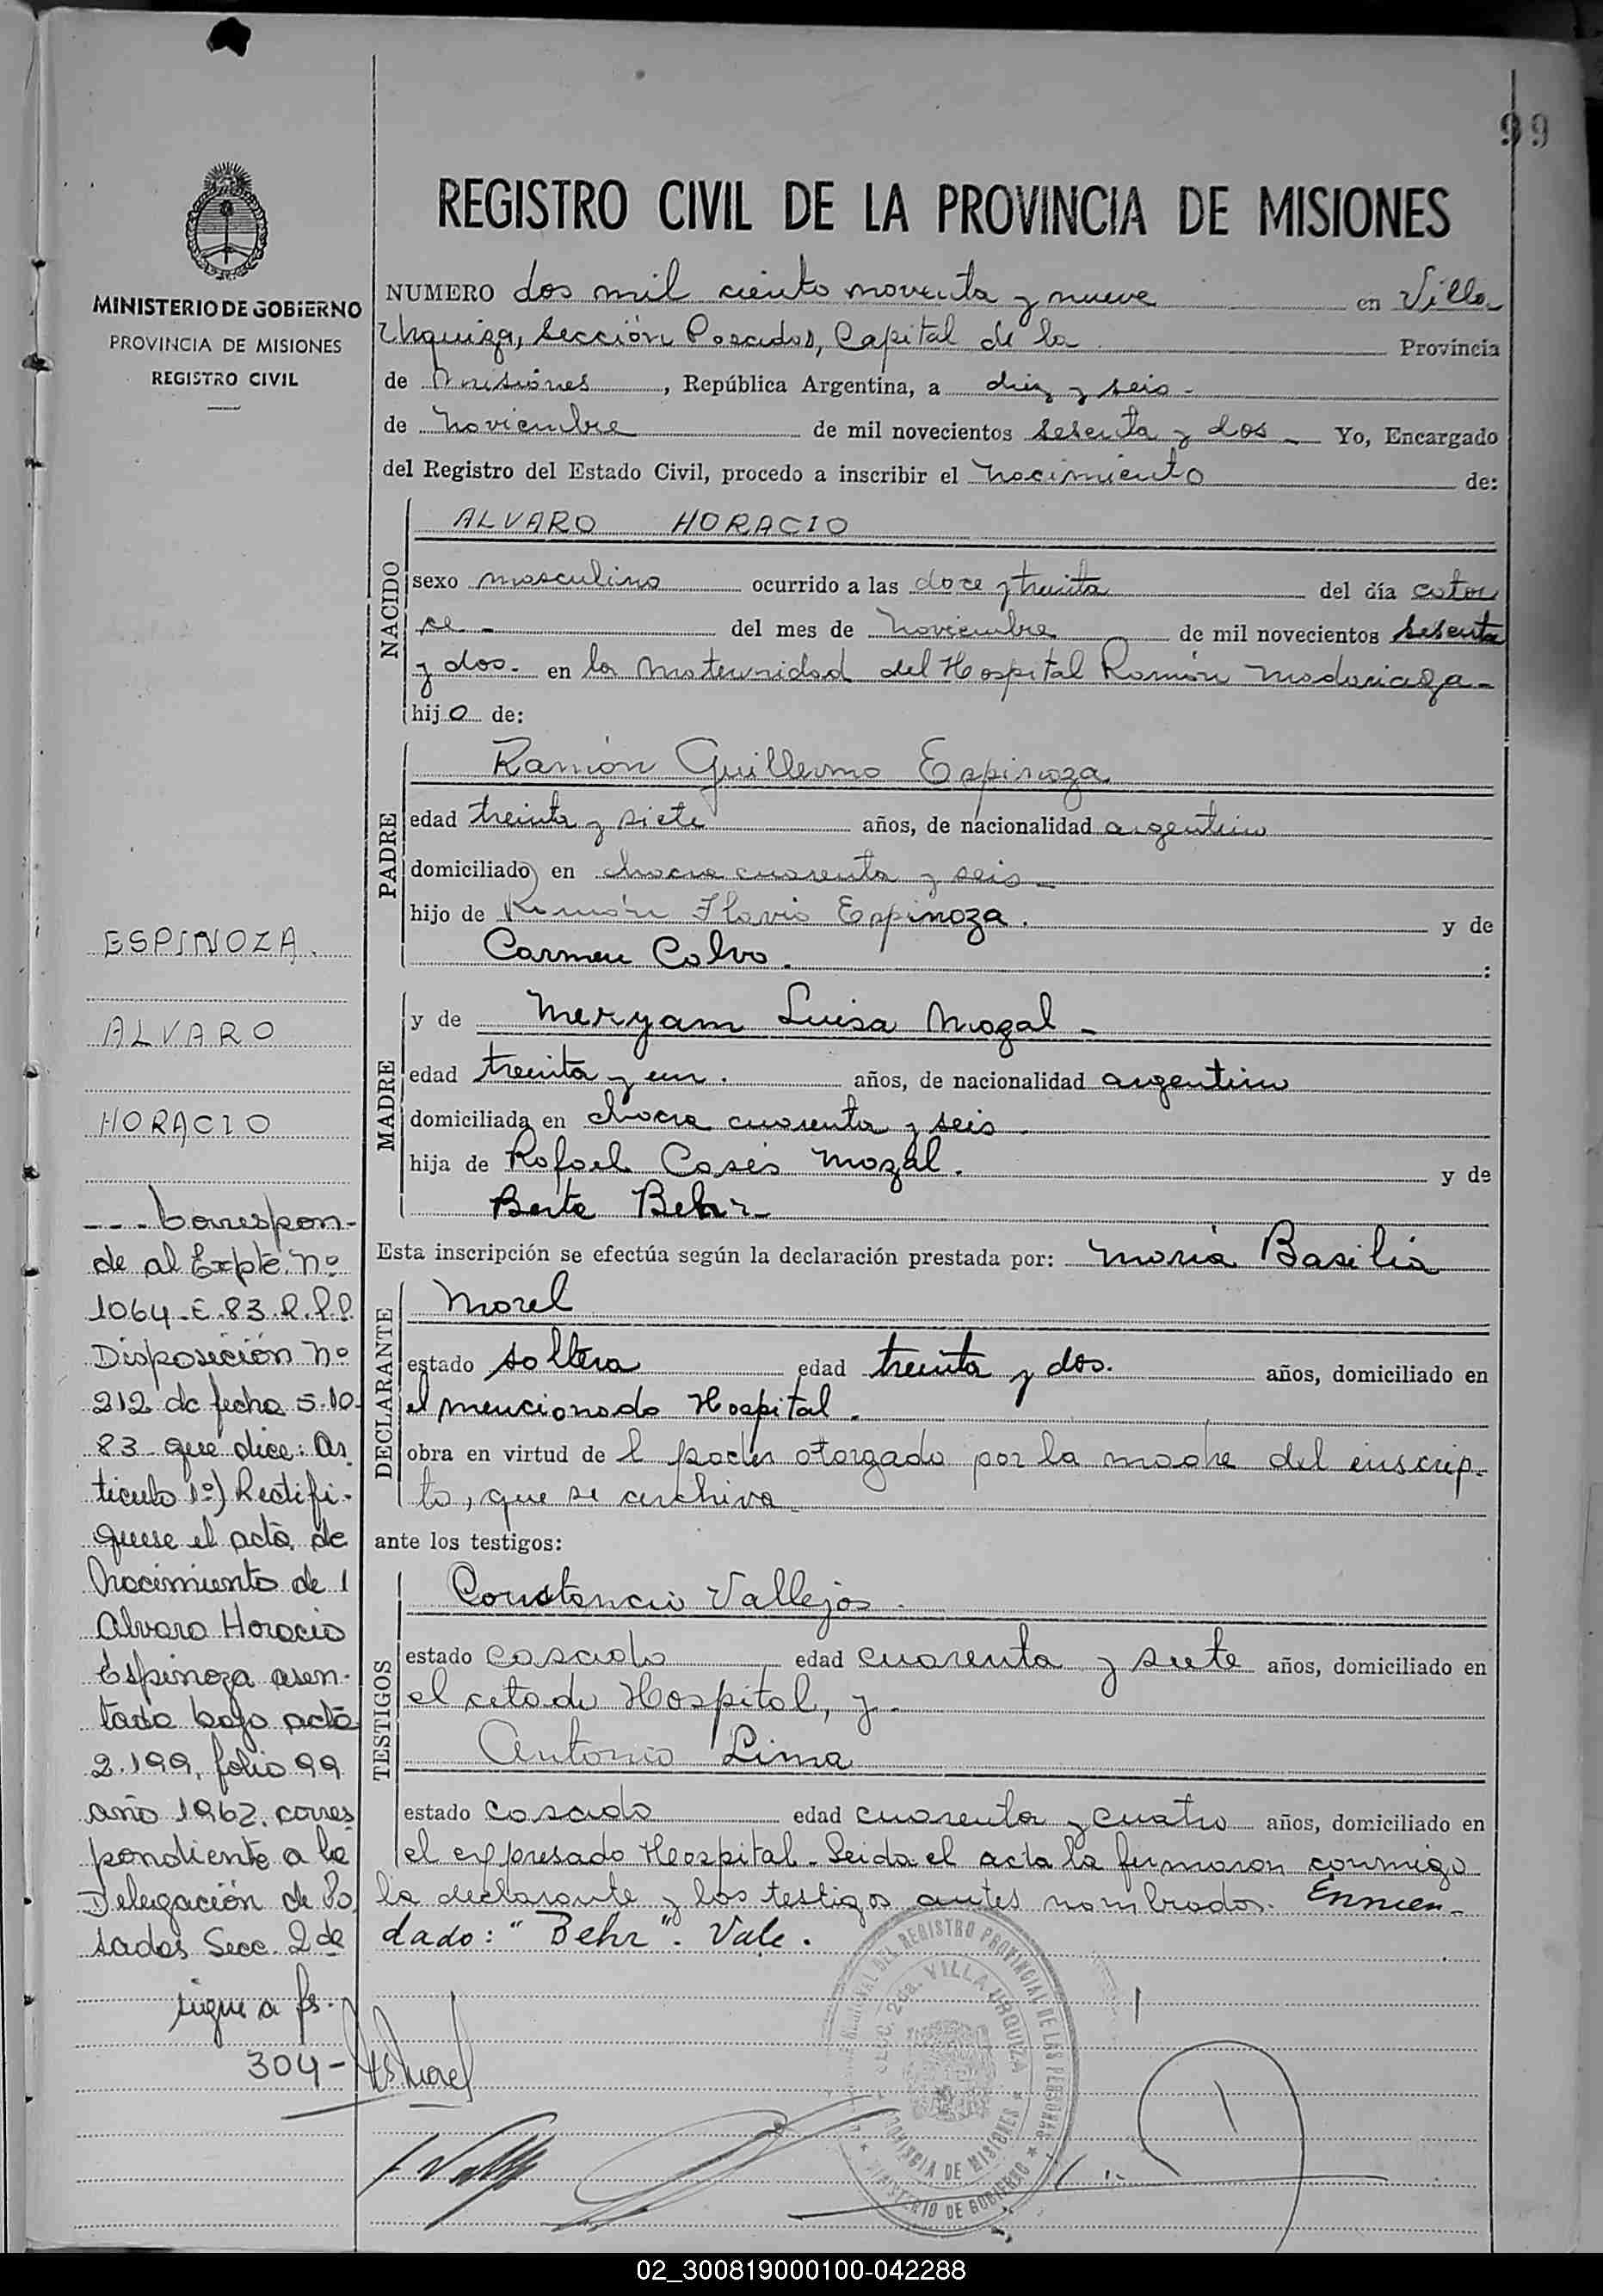 99
REGISTRO CIVIL DE LA PROVINCIA DE MISIONES
MINISTERIO DE GOBIERNO
PROVINCIA DE MISIONES
REGISTRO CIVIL
NUMERO dos mil ciento noventa y nueve en Villa
Urquiza, Sección Posadas, Capital de la Provincia
de Misiones, República Argentina, a diez y seis -
de Noviembre de mil novecientos sesenta y dos - Yo, Encargado
del Registro del Estado Civil, procedo a inscribir el Nacimiento de:
NACIDO
ALVARO HORACIO
sexo masculino ocurrido a las doce y treinta del día cator
ce - del mes de Noviembre de mil novecientos sesenta
y dos - en la Maternidad del Hospital Ramón Madariaga -
hijo de:
PADRE
Ramón Guillermo Espinoza
edad treinta y siete años, de nacionalidad argentino
domiciliado en chacra cuarenta y seis -
hijo de Ramón Flavio Espinoza. y de
Carmen Calvo. :
MADRE
y de Meryam Luisa Mogal -
edad treinta y un. años, de nacionalidad argentino
domiciliada en chacra cuarenta y seis -
hija de Rafael Mozal. y de
Berta Behr -
Esta inscripción se efectúa según la declaración prestada por: María Basilia
DECLARANTE
Morel
estado soltera edad treinta y dos. años, domiciliado en
el mencionado Hospital.
obra en virtud de l poder otorgado por la madre del inscrip-
to, que se archiva
ante los testigos:
TESTIGOS
Constancio Vallejos -
estado casado edad cuarenta y siete años, domiciliado en
el citado Hospital, y -
Antonio Lima
estado casado edad cuarenta y cuatro años, domiciliado en
el expresado Hospital - Leida el acta la firmaron conmigo
la declarante y los testigos antes nombrados. Enmen-
dado: "Behr". Vale.
ESPINOZA.
ALVARO
HORACIO
- - - Correspon-
de al Expte. Nº
1064-E-83 R.P.P.
Disposición Nº
212 de fecha 5-10-
83 - que dice: Ar
tículo 1º) Rectifí-
quese el acta de
Nacimiento de
Alvaro Horacio
Espinoza asen-
tada bajo acta
2.199, folio 99
año 1962. corres
pondiente a la
Delegación de Po
sadas Secc. 2 da
sigue a fs.
304 -
Morel
REGISTRO PROVINCIAL DE LAS PERSONAS
SECC. 2da. VILLA URQUIZA
PROVINCIA DE MISIONES
MINISTERIO DE GOBIERNO
02_300819000100-042288